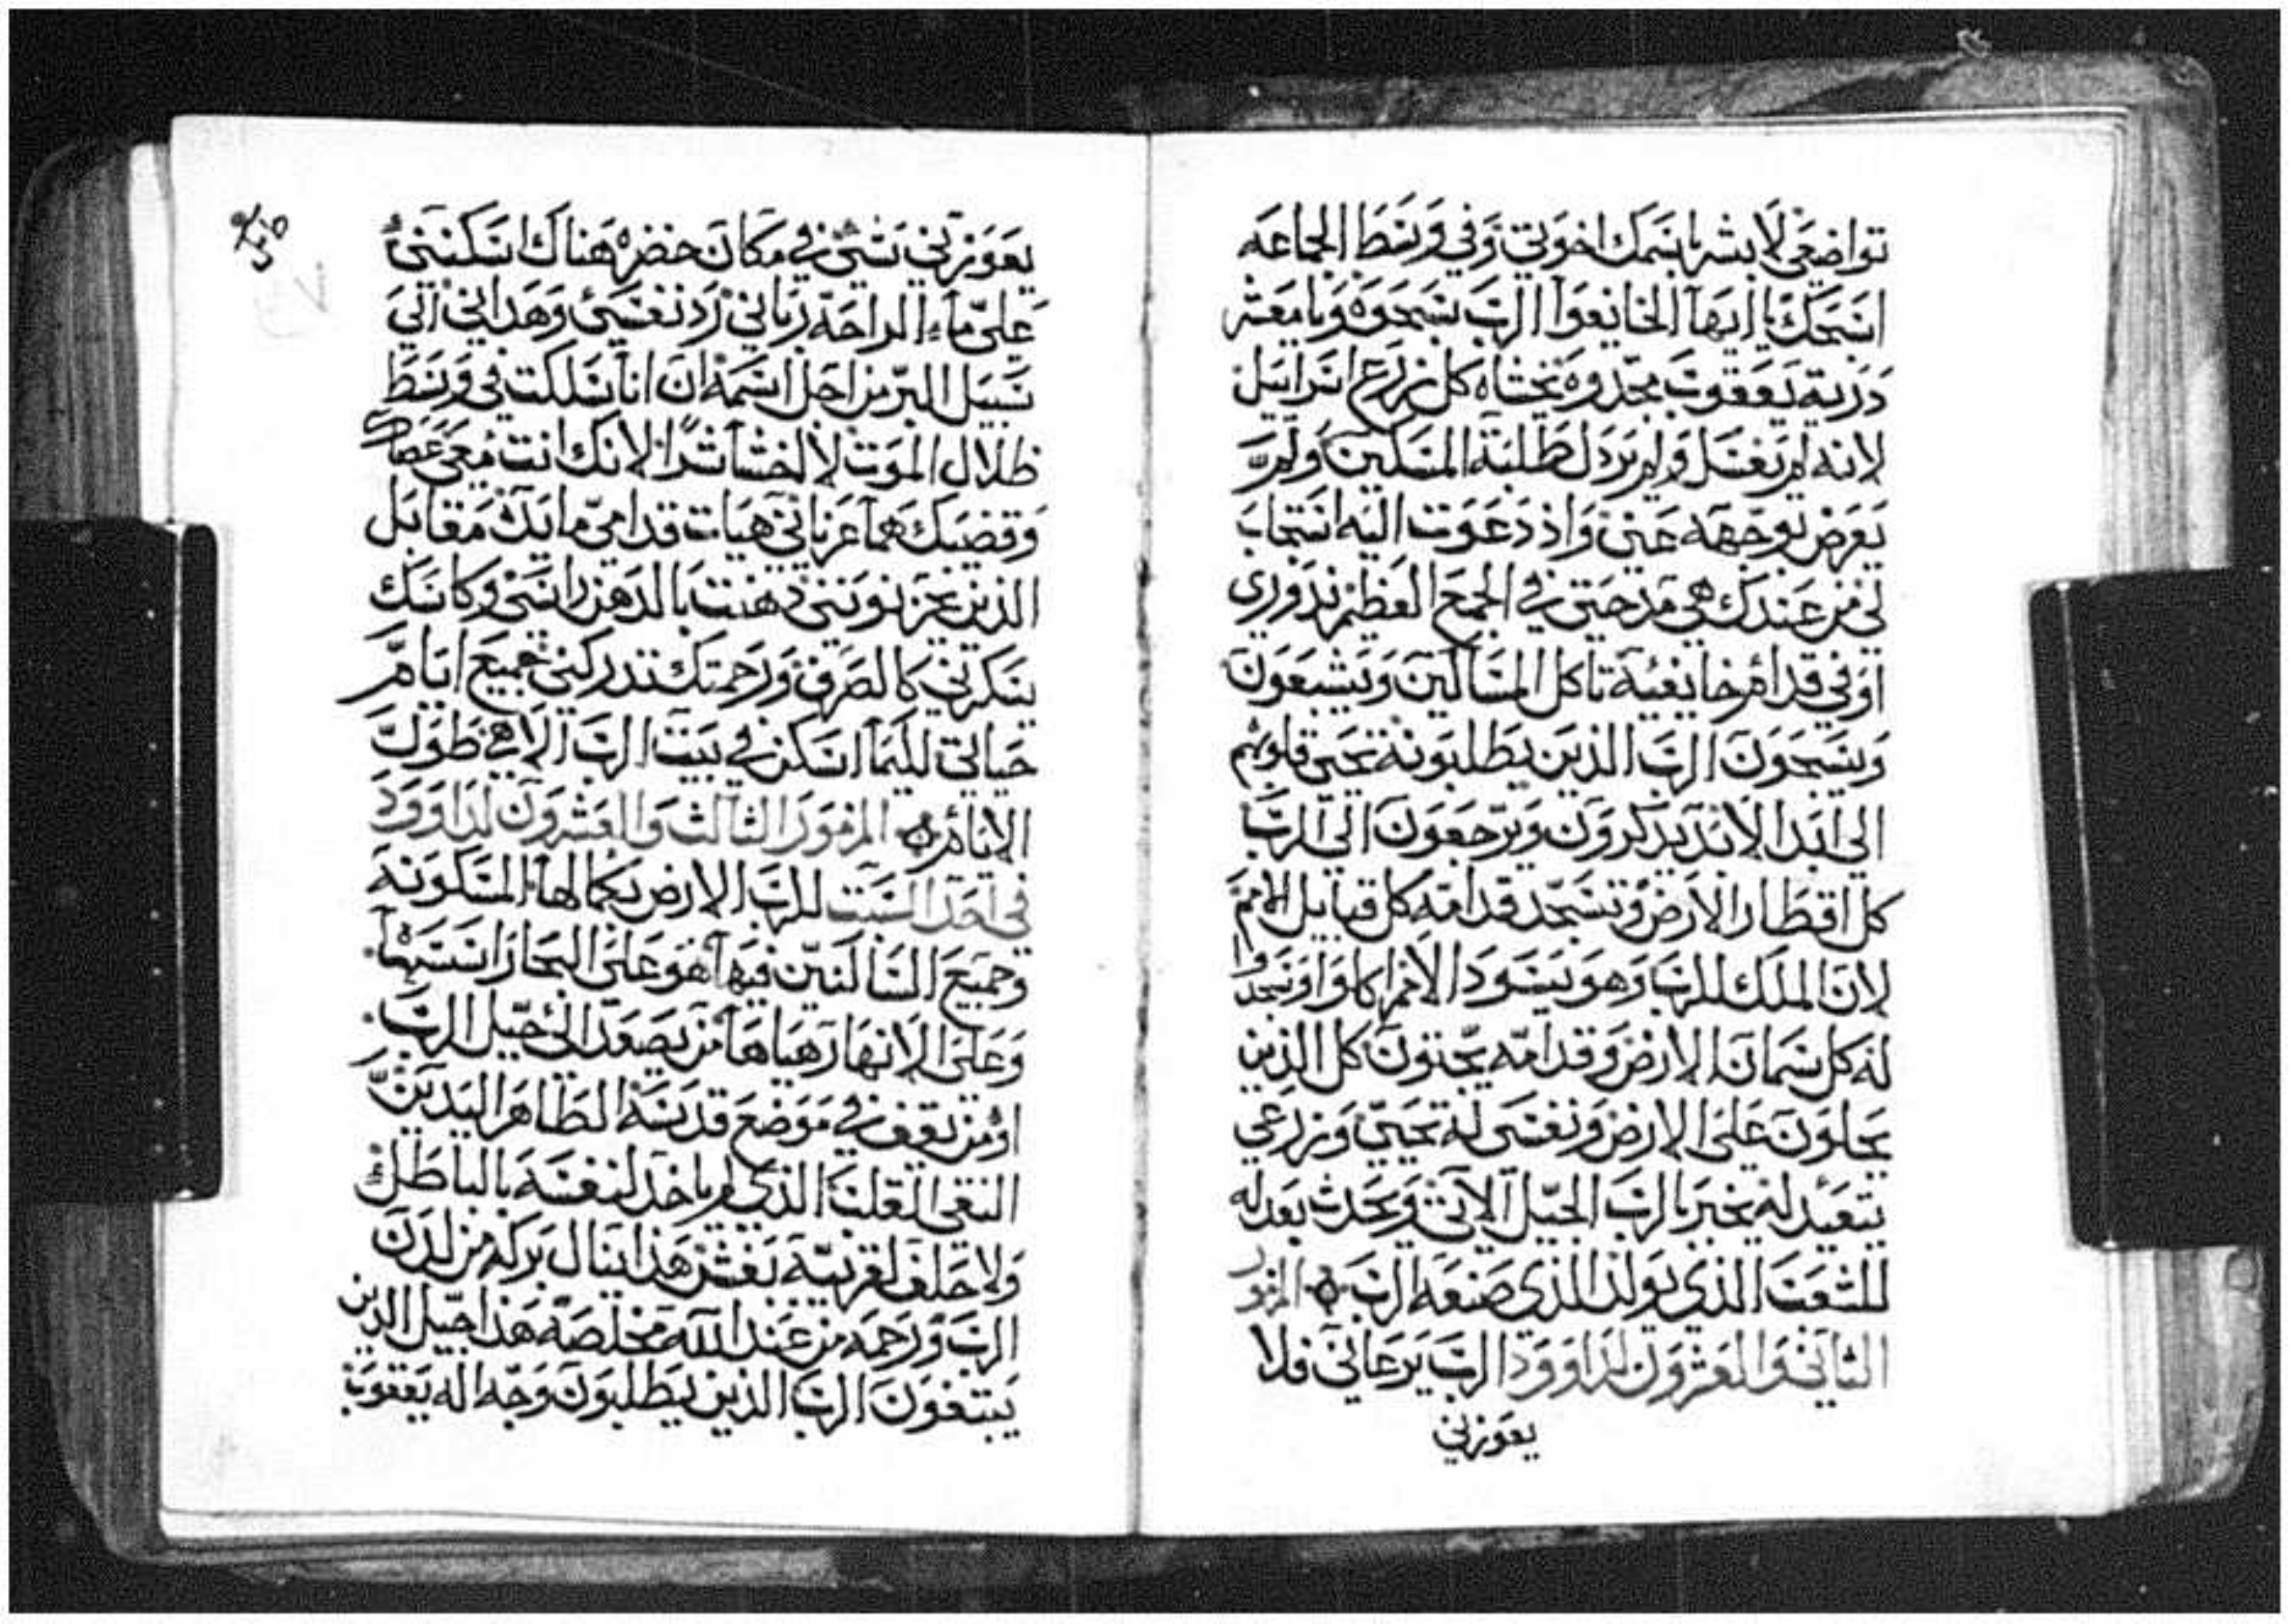 تواضعي لابشر باسمك اخوتي وفي وسط الجماعه
اسبحك يا ايها الخايفوا الرب سبحوه ويا معشر
ذرية يعقوب مجدوه تخشاه كل زرع اسراييل
لانه لم يغفل ولم يردل طلبة المسكين ولم
يعرض بوجهه عني واذ دعوت اليه استجاب
لي من عندك هي مدحتي في الجمع العظيم ندوري
اوفي قدام خايفيه تاكل المساكين ويشبعون
ويسبحون الرب الذين يطلبونه تحيى قلوبهم
الى ابد الابد يدكرون ويرجعون الى الرب
كل اقطار الارض وتسجد قدامه كل قبايل الامم
لان الملك للرب وهو يسود الامم اكلوا وسجدوا
له كل سمان الارض وقدامه يجتون كل الذين
يحلون على الارض ونفسي له تحيى وزرعي
يتعبد له يخبر بالرب الجيل الاتي ويحدث بعدله
للشعب الذي يولد الذي صنعه الرب المزمور
الثاني والعشرون لداوود الرب يرعاني فلا
يعوزني
يعوزني شيء في مكان خضره هناك اسكنني
على ماء الراحة رباني رد نفسي وهداني الي
سبيل البر من اجل اسمه ان انا سلكت في وسط
ظلال الموت لا اخشا شرا لانك انت معي عصاك
وقضيبك هما عزياني هيات قدامي مايدة مقابل
الذين يحزنونني دهنت بالدهن راسي وكاسك
يسكرني كالصرف ورحمتك تدركني جميع ايام
حياتي لكيما اسكن في بيت الرب الاهي طول
الايام المزمور الثالث والعشرون لداوود
في احد السبت للرب الارض بكمالها المسكونة
وجميع الساكنين فيها هو على البحار اسسها
وعلى الانهار هياها من يصعد الى جبل الرب
او من يقف في موضع قدسه الطاهر اليدين
النقي القلب الذي لم ياخد لنفسه بالباطل
ولا حلف لقريبه بغش هذا ينال بركه من لدن
الرب ورحمه من عند الله مخلصه هذا جيل الذين
يبتغون الرب الذين يطلبون وجه اله يعقوب